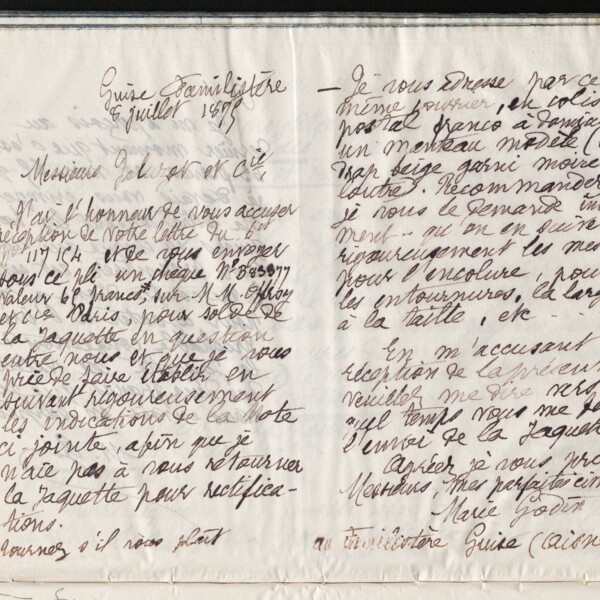 Guise Familistère
8 juillet 18
Messieurs Jaluzot et Cie,
J'ai l'honneur de vous accuser
réception de votre lettre du 6 ct
117154 et de vous envoyer
sous ce pli un chèque N° 
valeur 69 francs, sur M.M. Offroy
et Cie Paris, pour solde de
la Jaquette en question
entre nous et que je vous
prie de faire établir en
suivant rigoureusement
les indications de la note
ci-jointe, afin que je
n'aie pas à vous retourner
la Jaquette pour rectifica-
tions.
Tournez s'il vous plait
— Je vous adresse par ce
même courrier, en colis
postal franco à domi
un manteau modèle (
drap beige garni moire
loutre. Recommander
je vous le demande in
ment — qu'on en suive
rigoureusement les mes
pour l'encolure, pou
les entournures, la larg
à la taille, etc —
En m'accusant
réception de la présen
veuillez me dire vers
quel temps vous me
l'envoi de la Jaquette
Agréez je vous pr
Messieurs, mes parfaites
Marie Godin
au Familistère Guise (Aisn